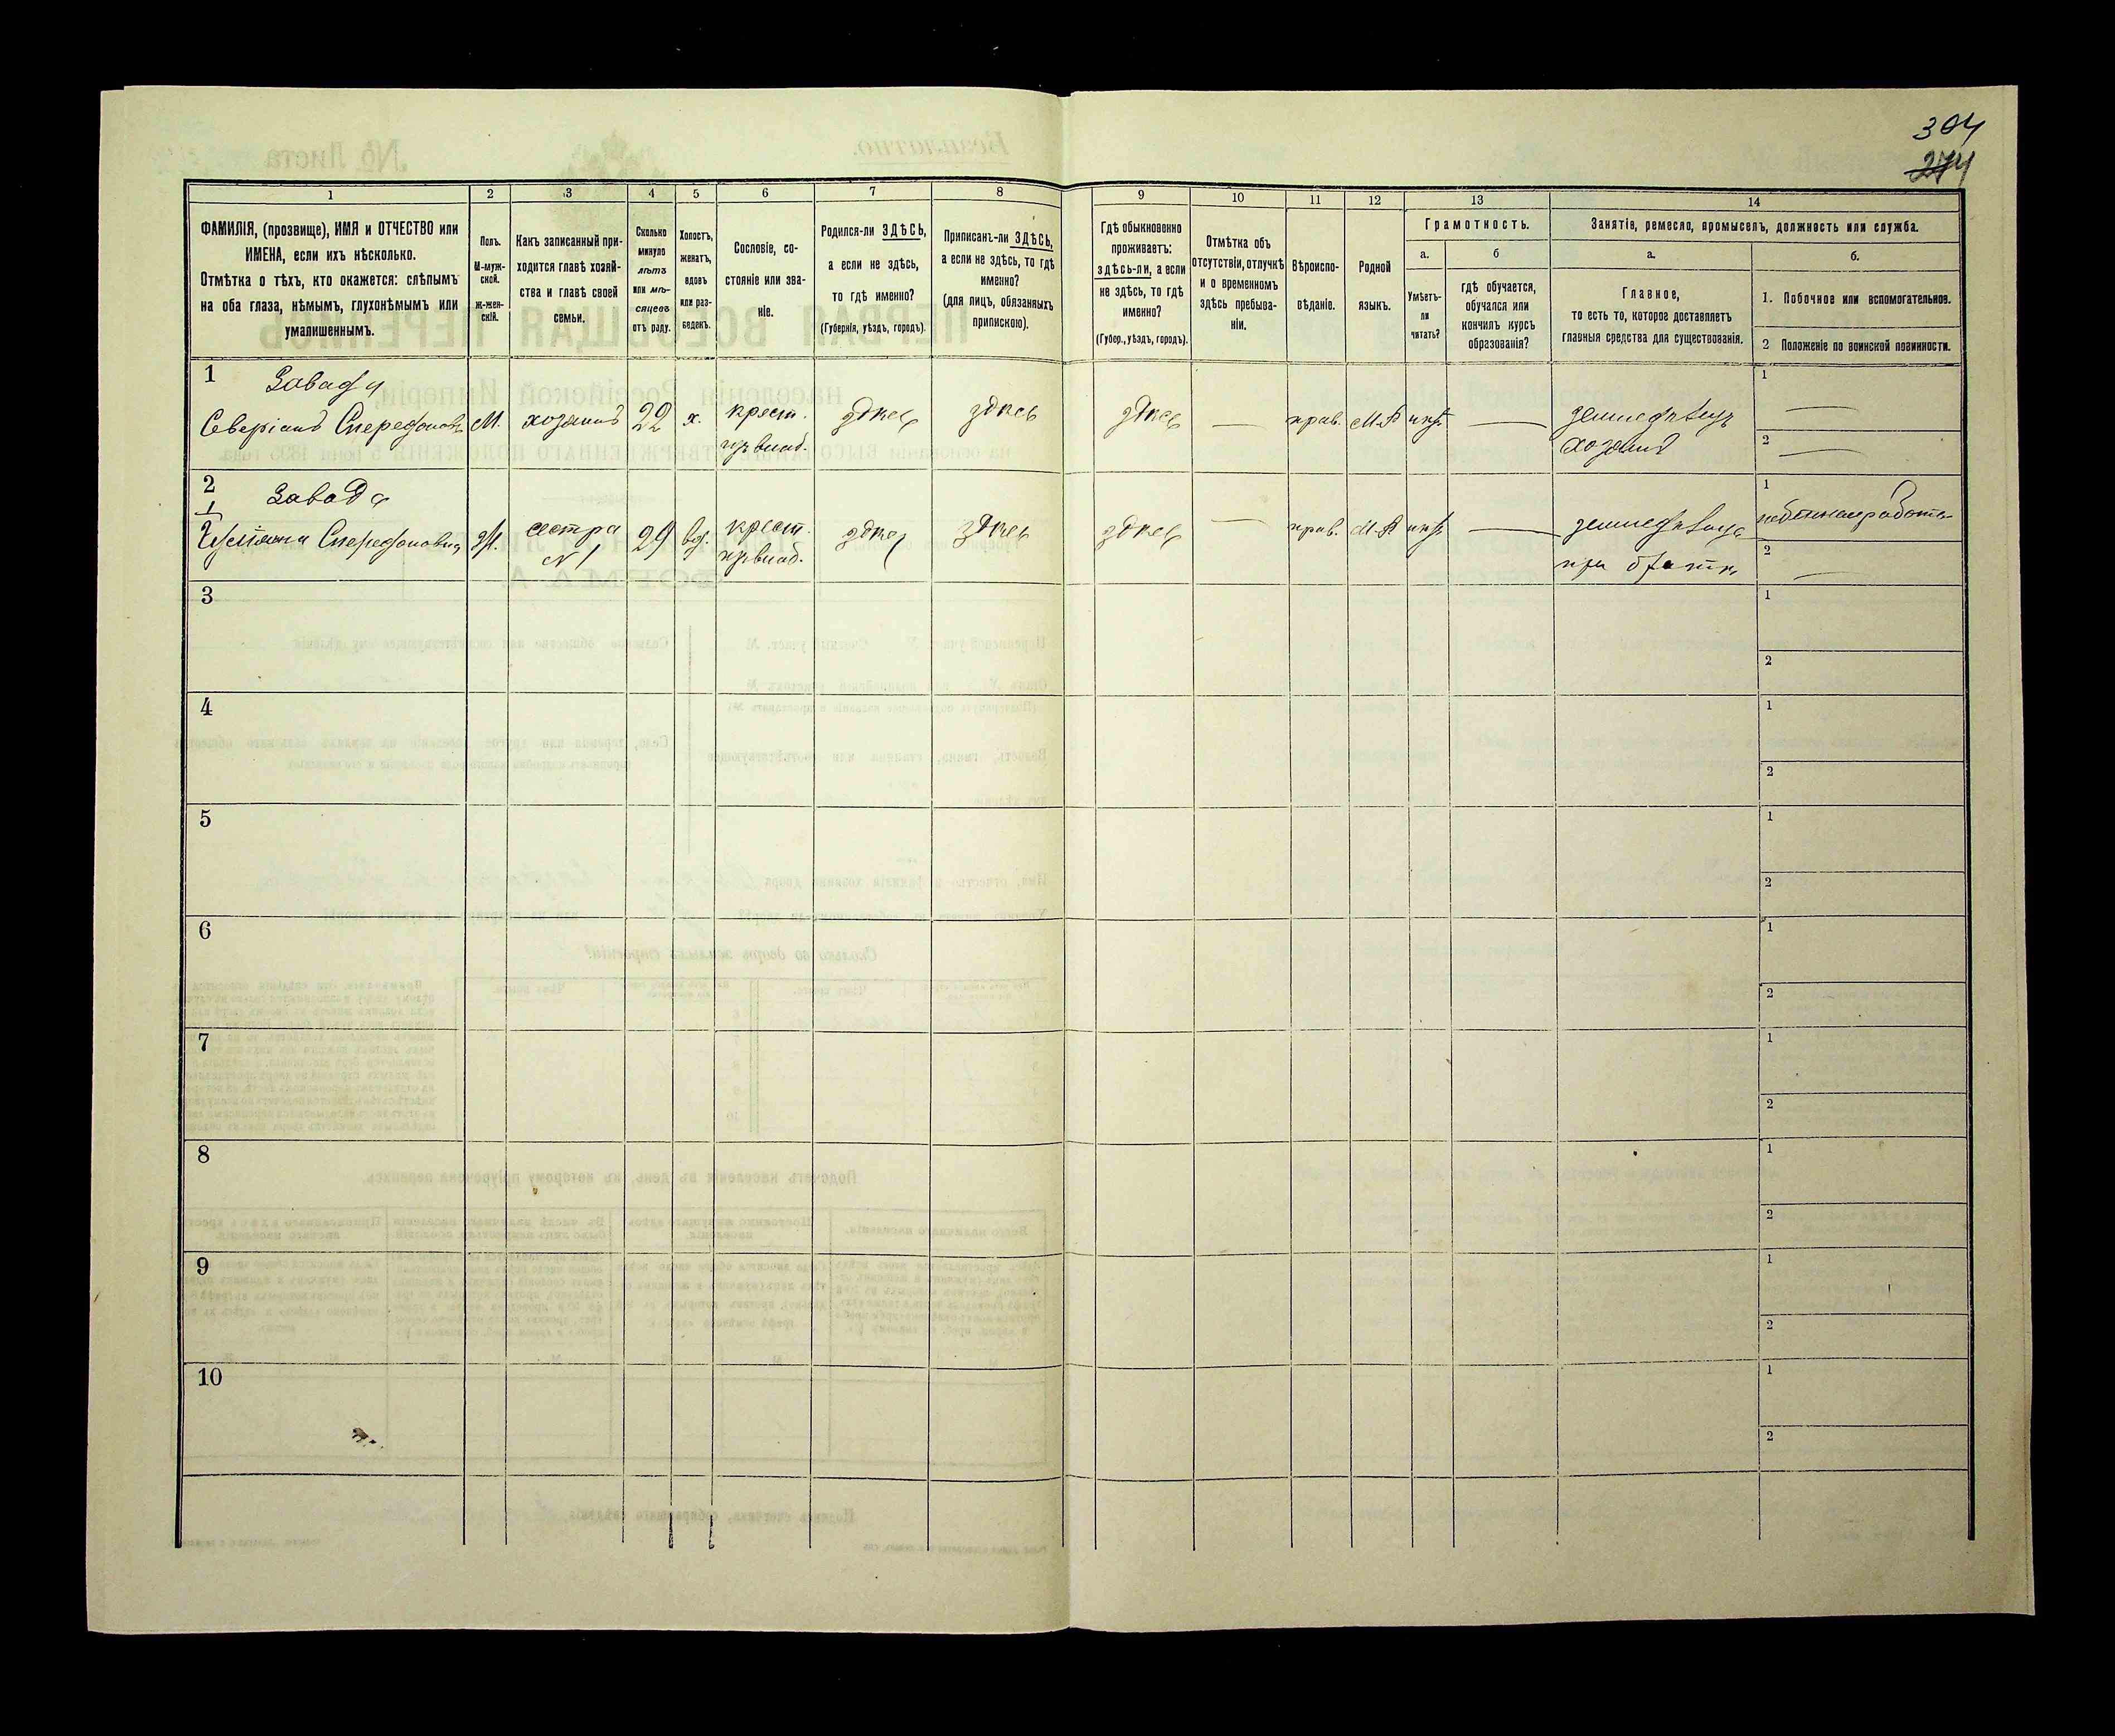 304
274
1
2
3
4
5
6
7
8
9
10
11
12
13
14
ФАМИЛІЯ, (прозвище), ИМЯ и ОТЧЕСТВО или
ИМЕНА, если ихъ нѣсколько.
Отмѣтка о тѣхъ, кто окажется: слѣпымъ
на оба глаза, нѣмымъ, глухонѣмымъ или
умалишеннымъ.
Полъ.
М-муж-
ской.
Ж-жен-
скій.
Какъ записанный при-
ходится главѣ хозяй-
ства и главѣ своей
семьи.
Сколько
минуло
лѣтъ
или мѣ-
сяцевъ
отъ роду.
Холостъ,
женатъ,
вдовъ
или раз-
веденъ.
Сословіе, со-
стояніе или зва-
ніе.
Родился-ли ЗДѢСЬ,
а если не здѣсь,
то гдѣ именно?
(Губернія, уѣздъ, городъ).
Приписанъ-ли ЗДѢСЬ,
а если не здѣсь, то гдѣ
именно?
(для лицъ, обязанныхъ
припискою).
Гдѣ обыкновенно
проживаетъ:
здѣсь-ли, а если
не здѣсь, то гдѣ
именно?
(Губер., уѣздъ, городъ).
Отмѣтка объ
отсутствіи, отлучкѣ
и о временномъ
здѣсь пребыва-
ніи.
Вѣроиспо-
вѣданіе.
Родной
языкъ.
Грамотность.
а.
Умѣетъ-
ли
читать?
б
гдѣ обучается,
обучался или
кончилъ курсъ
образованія?
Занятіе, ремесло, промыселъ, должность или служба.
а.
Главное,
то есть то, которое доставляетъ
главныя средства для существованія.
б.
1. Побочное или вспомогательное.
2 Положеніе по воинской повинности.
1
Завада
Северіанъ
М.
хозяинъ
22
х.
крест.
здѣсь
здѣсь
здѣсь
—
прав.
М.Р
—
земледѣлецъ
хозяинъ
1
—
2
—
2
1
Завада
ж.
сестра
N 1
29
вд.
крест.
здѣсь
здѣсь
здѣсь
—
прав.
М.Р
—
при братѣ
1
2
—
3
1
2
4
1
2
5
1
2
6
1
2
7
1
2
8
1
2
9
1
2
10
1
2